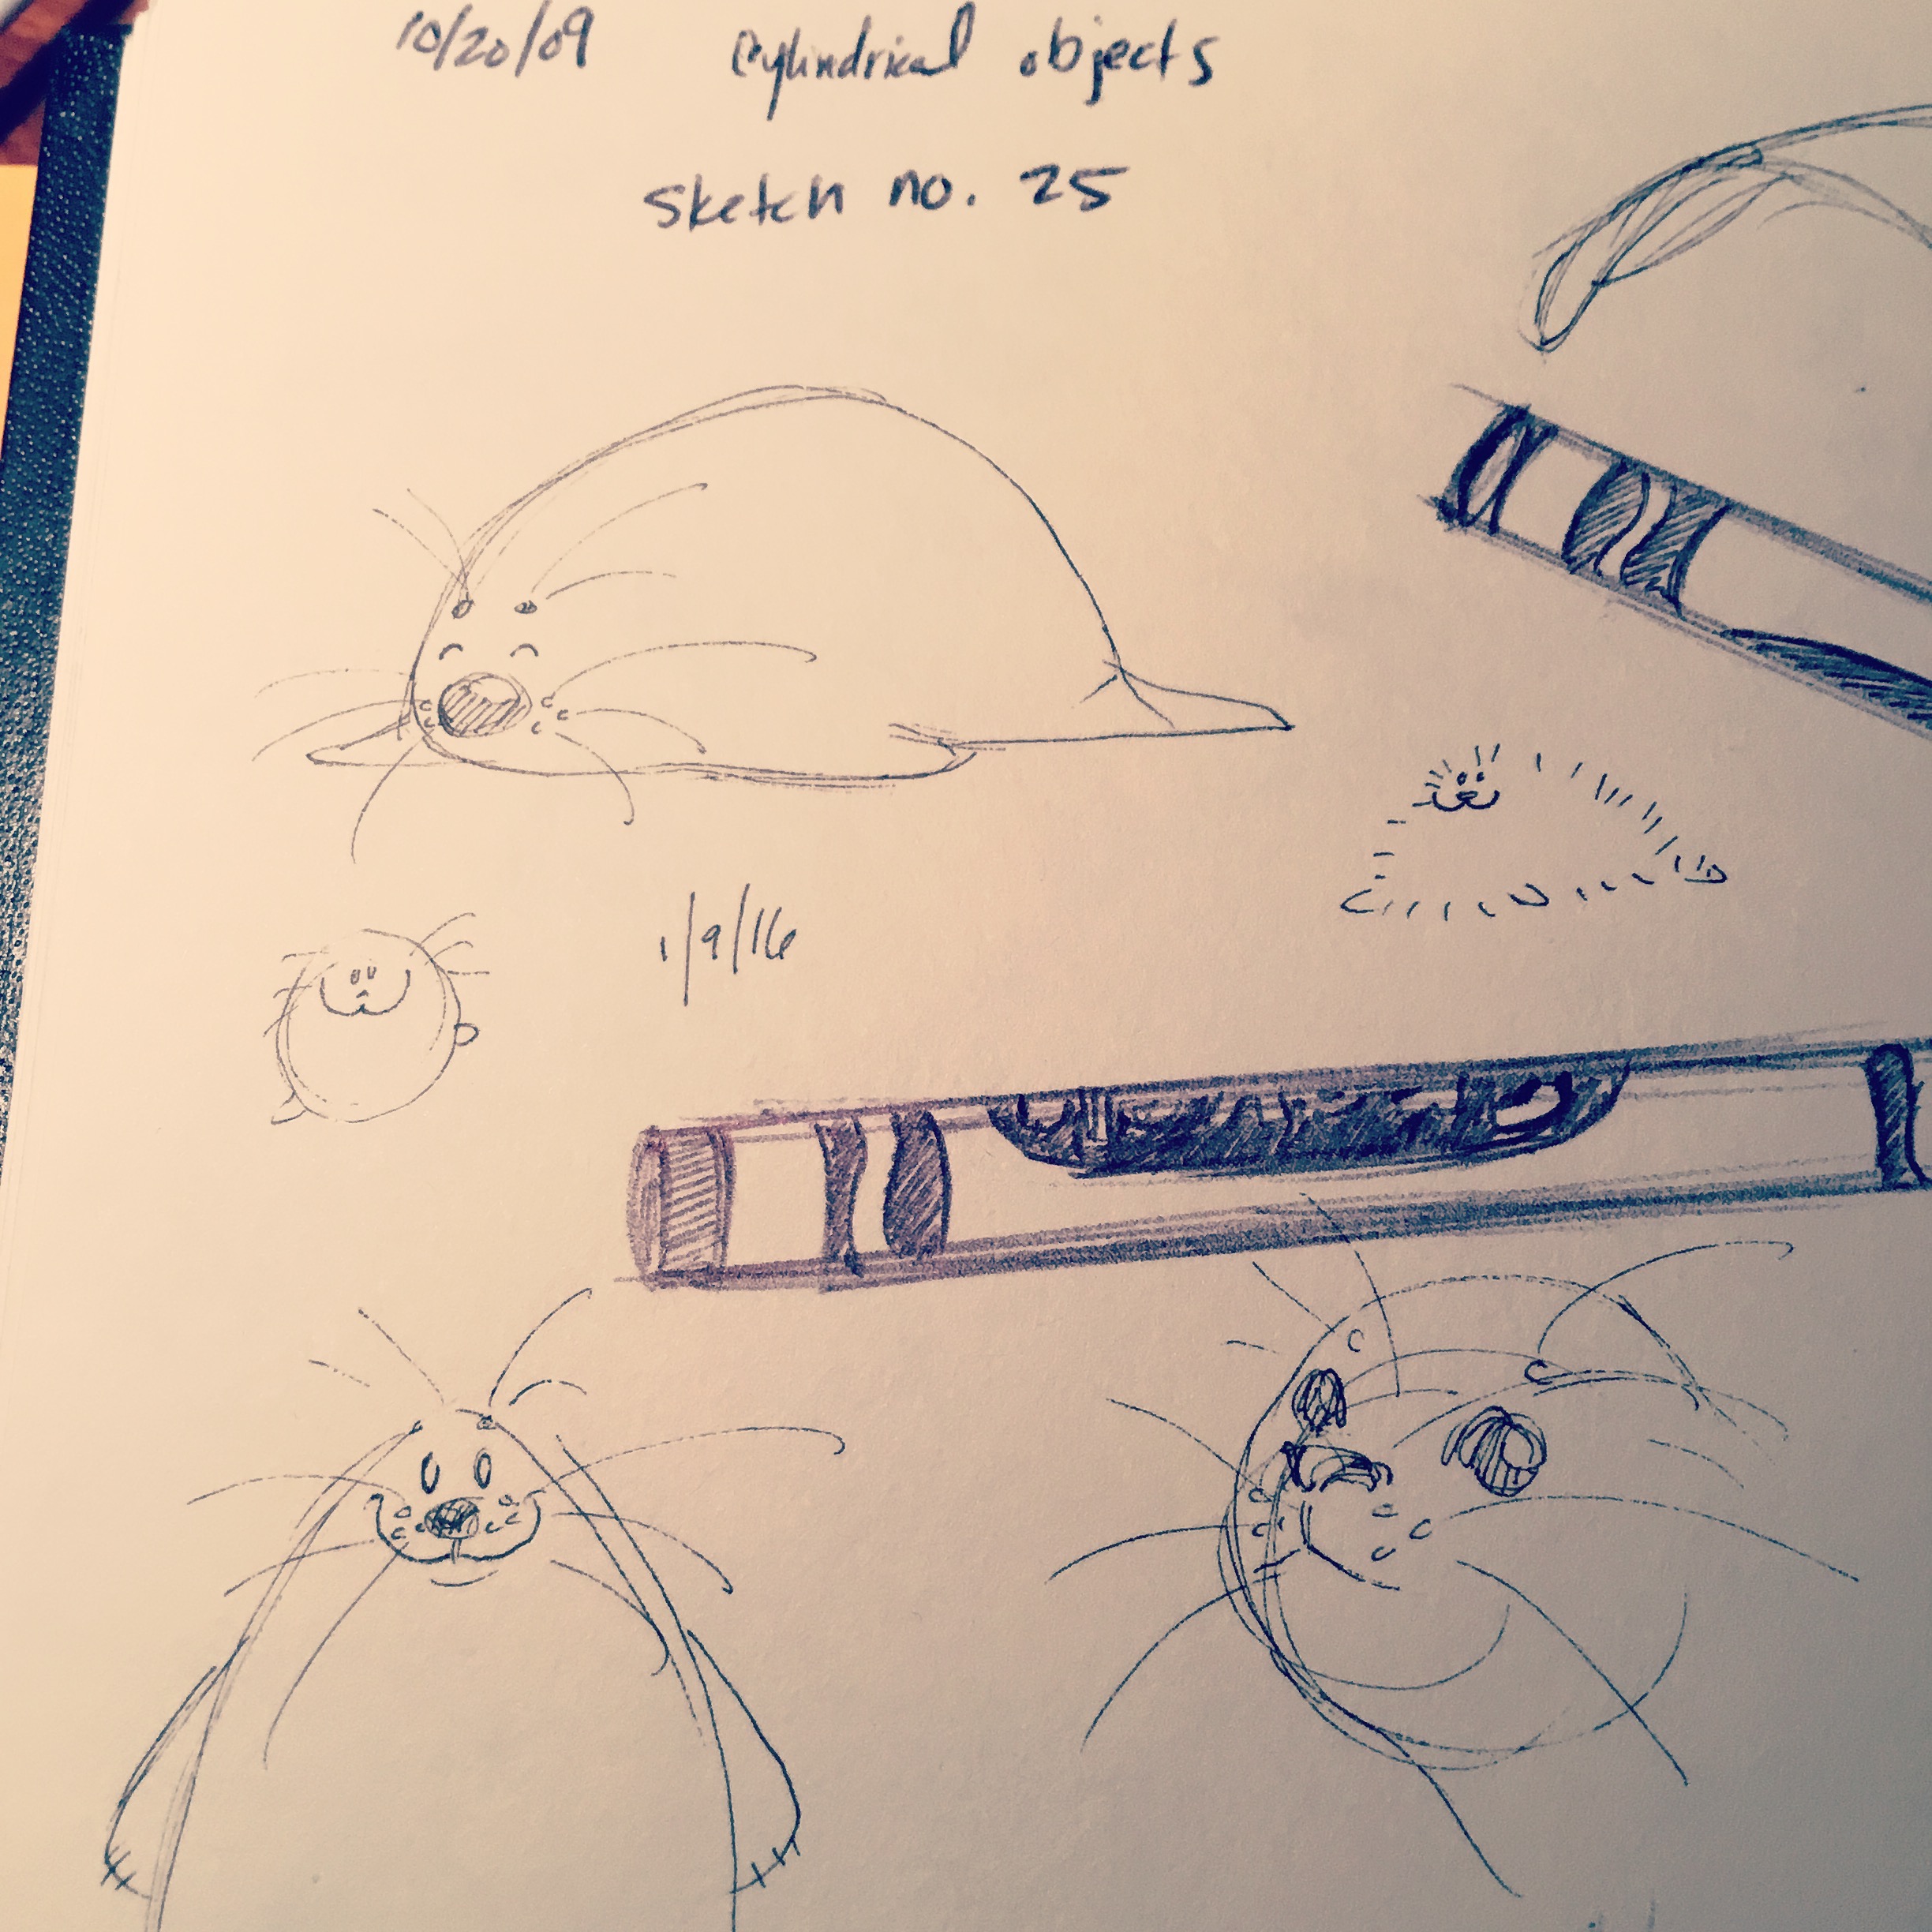 10/20/09 Cylindrical objects
Sketch no. 25
1/9/16